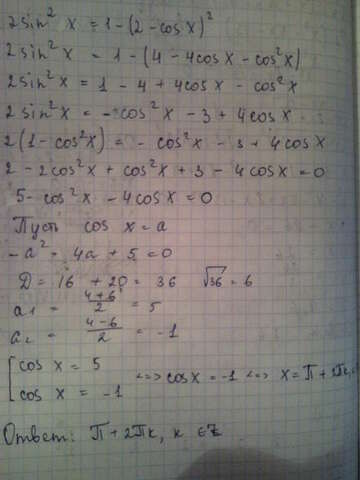 2sin² x = 1 - (2 - cos x)²
2sin² x = 1 - (4 - 4cos x - cos² x)
2sin² x = 1 - 4 + 4cos x - cos² x
2sin² x = - cos² x - 3 + 4cos x
2(1 - cos² x) = - cos² x - 3 + 4cos x
2 - 2cos² x + cos² x + 3 - 4cos x = 0
5 - cos² x - 4cos x = 0
Пусть cos x = a
-a² - 4a + 5 = 0
D = 16 + 20 = 36 √36 = 6
a₁ = (4+6)/2 = 5
a₂ = (4-6)/2 = -1
[ cos x = 5
cos x = -1 <=> cos x = -1 <=> x = П + 2Пk,
Ответ: П + 2Пk, k ∈ Z